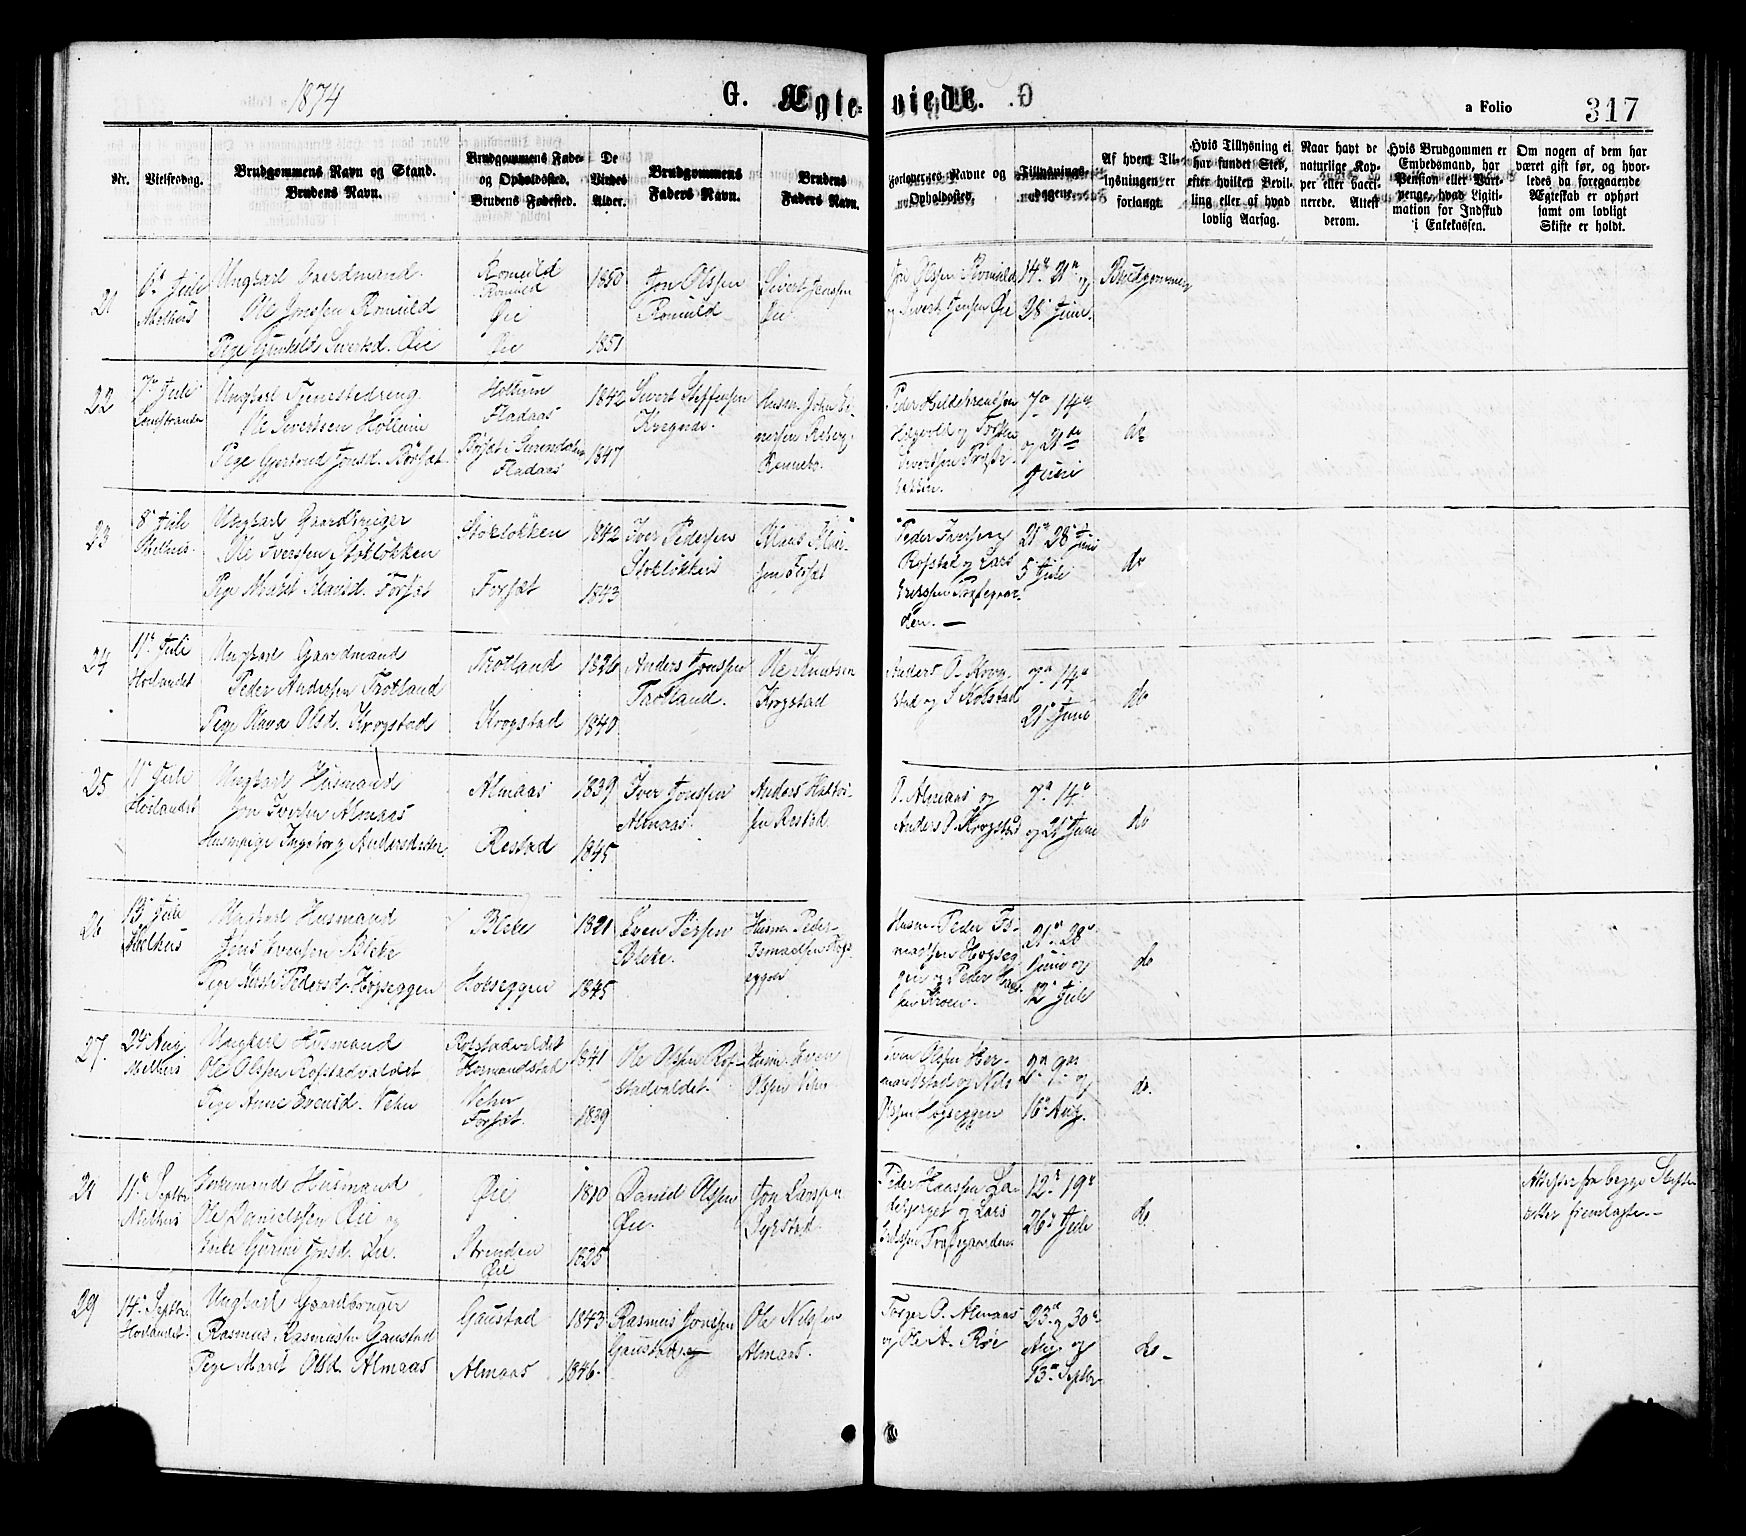 1874
G. Ægte-
viede.
a Folio 317
Nr.
Vielsesdag.
Brudgommens Navn og Stand.
Brudens Navn.
Brudgommens Føde-
og Opholdssted.
Brudens Fødested.
De
Viedes
Alder.
Brudgommens
Faders Navn.
Brudens
Faders Navn.
Forlovernes Navne og
Opholdssted.
Tillysnings-
dagene.
Af hvem Til-
lysningen er
forlangt.
Hvis Tillysning ei
har fundet Sted,
efter hvilken Bevil-
ling eller af hvad
lovlig Aarsag.
Naar havt de
naturlige Kop-
per eller vacci-
nerede. Attest
derom.
Hvis Brudgommen er
Embedsmand, har
Pension eller Vart-
penge, hvad Ligiti-
mation for Indskud
i Enkekassen.
Om nogen af dem har
været gift før, og hvor-
ledes da foregaaende
Ægteskab er ophørt
samt om lovligt
Skifte er holdt.
21
6te Juli
Melhus
Ungkarl Gaardmand
Ole Jonsen Romuld
Pige Gunhild Sivertsd. Øie
Romuld
Romuld
Øie
Øie
1850
1851
Jon Olssen
Romuld
Sivert Jenssen
Øie
Jon Olssen Romuld
og Sivert Jensen Øie
14de 21de og
28de Juni.
Brudgommen
22
7de Juli
Ungkarl Tjenestedreng
Ole Sivertsen Hollum
Pige Gjertrud Jonsd. Børset
Hollum
Fladaas
Børset i Surendalen
Fladaas
1842
1847
Sivert Steffensen
Husm. John Ei-
nersen
Rennebo.
Peder Hildebrandsen
og
Sivertsen
7de 14de
og 21de
Juni
do
23
8de Juli
Melhus
Ungkarl Gaardbruger
Ole Iversen Stokløkken
Pige Marit Klausd. Forset
Stokløkken
Forset
1842
1843
Iver Pedersen
Stokløkken
Klaus
sen Forset
Peder Iversen
Rofstad og Lars
Erikssen Præstegaar-
den.
21de 28de Juni
5te Juli
do
24
11te Juli
Hølandet
Ungkarl Gaardmand
Peder Andersen Trotland
Pige Olava Olsd. Krogstad
Trotland
Krogstad
1826
1840
Anders Jonssen
Trotland.
Ole
Krogstad
Anders O. Krog-
stad og
7de 14de
21de Juni
do
25
11te Juli
Hølandet
Ungkarl Husmand
Jon Iversen Almaas
Husmpige Ingeborg Andersdatter
Almaas
Restad
1839
1845
Iver Jonssen
Almaas.
Anders Halvor-
sen Restad
O. Almaas og
Anders O. Krogstad
7de 14de
og 21de Juni
do
26
13de Juli
Melhus
Ungkarl Husmand
Jens Evensen Bleke
Pige Kirsti Pedersd. Høgseggen
Bleke
Høgseggen
1821
1845
Even
Bleke.
Husm. Peder
Ismaelsen Høgs-
eggen
Husm. Peder Is-
maelsen Høgseg-
gen og Peder
sen Kroen.
21de 28de
Juni og
12te Juli
do
27.
24de Aug
Melhus
Ungkarl Husmand
Ole Olssen Rofstadvaldet
Pige Anne Evensd. Vehn
Rofstadvaldet
Hermandstad
Vehn
Forset.
1841
1839
Ole Olssen Rof-
stadvaldet.
Husm. Even
Olssen Vehn
Sven Olssen Her-
mandstad og Nils
Olssen Høgseggen
2den 9de og
16de Aug.
do.
28
11te Septbr
Melhus
Enkemand Husmand
Ole Danielssen Øie og
Enke Guruu Jonsd. Øie.
Øie
Strinden
Øie
1810
1825
Daniel Olssen
Øie.
Jon Larssen
Syrstad.
Peder Haassen La-
debjerget og Lars
Erikssen Præstegaarden
12te 19de
26de Juli
do
Attester fra begge Skifte-
retter fremlagte.
29
14de Septbr
Hølandet.
Ungkarl Gaardbruger
Rasmus Rasmussen Gaustad
Pige Marit Olsd. Almaas
Gaustad
Almaas
1843
1846.
Rasmus Jonssen
Gaustad
Ole Nilssen
Almaas.
Torger O. Almaas
og Ole A. Røe
23de og 30te
Aug. og
13de Septbr.
do